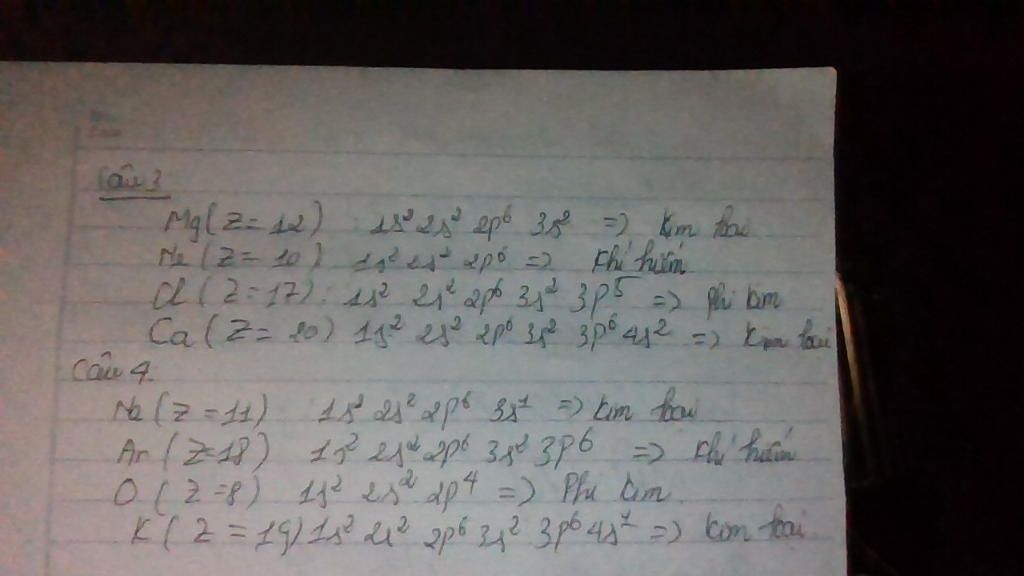 Câu 3
Mg (Z = 12) : 1s² 2s² 2p⁶ 3s² => Kim loại
Ne (Z = 10) 1s² 2s² 2p⁶ => Khí hiếm
Cl (Z = 17) : 1s² 2s² 2p⁶ 3s² 3p⁵ => phi kim
Ca (Z = 20) 1s² 2s² 2p⁶ 3s² 3p⁶ 4s² => Kim loại
Câu 4.
Na (Z = 11) 1s² 2s² 2p⁶ 3s¹ => Kim loại
Ar (Z=18) 1s² 2s² 2p⁶ 3s² 3p⁶ => Khí hiếm
O (Z =8) 1s² 2s² 2p⁴ => Phi kim.
K (Z = 19) 1s² 2s² 2p⁶ 3s² 3p⁶ 4s¹ => Kim loại.